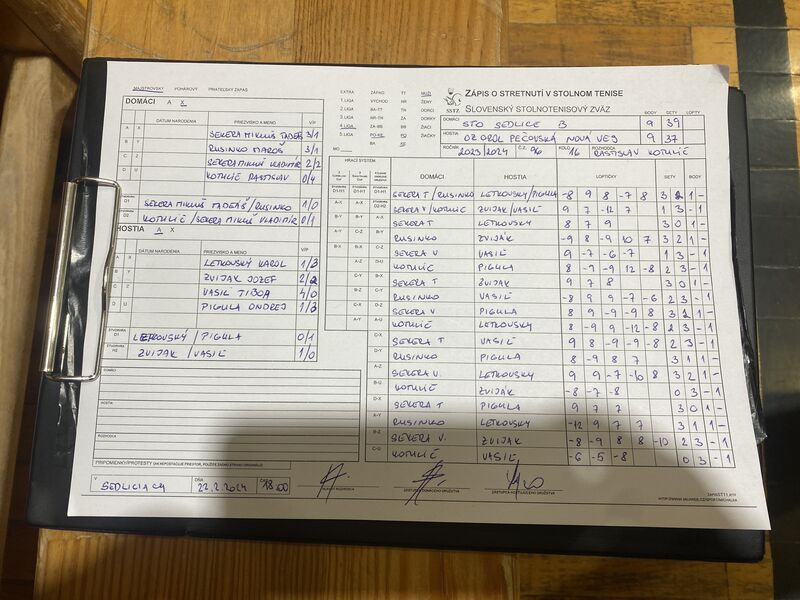 MAJSTROVSKÝ POHÁROVÝ PRIATEĽSKÝ ZÁPAS
DOMÁCI A X
DÁTUM NARODENIA PRIEZVISKO A MENO V/P
A X SEKERA MIKUŠ TADEÁŠ 3/1
B Y RUSINKO MAROŠ 3/1
C Z SEKERA MIKUŠ VLADIMÍR 2/2
D U KOTULIČ RASTISLAV 0/4
ŠTVORHRA D1 SEKERA MIKUŠ TADEÁŠ / RUSINKO 1/0
ŠTVORHRA D2 KOTULIČ / SEKERA MIKUŠ VLADIMÍR 0/1
HOSTIA A X
DÁTUM NARODENIA PRIEZVISKO A MENO V/P
A X LETKOVSKÝ KAROL 1/3
B Y ZVIJAK JOZEF 2/2
C Z VASIĽ TIBOR 4/0
D U PIGULA ONDREJ 1/3
LETKOVSKÝ / PIGULA 0/1
ZVIJAK / VASIĽ 1/0
DOMÁCI
HOSTIA
ROZHODCA
PRIPOMIENKY/PROTESTY
V SEDLICIACH DŇA 22.2.2024 18:00
ZÁSTUPCA DOMÁCEHO DRUŽSTVA
ZÁSTUPCA HOSŤUJÚCEHO DRUŽSTVA
EXTRA ZÁPAD TT MUŽI
1. LIGA VÝCHOD NR ŽENY
2. LIGA BA-TT TN DORCI
3. LIGA NR-TN ZA DORKY
4. LIGA ZA-BB BB ŽIACI
5. LIGA PO-KE PO ŽIAČKY
BA KE
SSTZ
ZÁPIS O STRETNUTÍ V STOLNOM TENISE
SLOVENSKÝ STOLNOTENISOVÝ ZVÄZ
BODY SETY LOPTY
DOMÁCI STO SEDLICE B 9 39
HOSTIA OZ OROL PEČOVSKÁ NOVÁ VES 9 37
ROČNÍK 2023/2024 Č.Z. 96 KOLO 16 ROZHODCA RASTISLAV KOTULIČ
HRACÍ SYSTÉM
DOMÁCI HOSTIA LOPTIČKY SETY BODY
SEKERA T / RUSINKO LETKOVSKÝ/PIGULA -8 9 8 -7 8 3 2 1 -
SEKERA V / KOTULIČ ZVIJAK/VASIĽ 9 7 -12 7 1 3 - 1
SEKERA T LETKOVSKÝ 8 7 9 3 0 1 -
RUSINKO ZVIJÁK -9 8 -9 10 7 3 2 1 -
SEKERA V VASIĽ -9 -7 6 -7 1 3 - 1
KOTULIČ PIGULA 8 -7 -9 12 -8 2 3 - 1
SEKERA T ZVIJAK 9 7 8 3 0 1 -
RUSINKO VASIĽ -8 9 9 -7 -6 2 3 - 1
SEKERA V PIGULA 8 9 -9 -9 8 3 2 1 -
KOTULIČ LETKOVSKÝ 8 -9 9 -12 -8 2 3 - 1
SEKERA T VASIĽ 9 8 -9 -9 -8 2 3 - 1
RUSINKO PIGULA 8 -9 8 7 3 1 1 -
SEKERA V. LETKOVSKÝ 9 9 -7 -10 8 3 2 1 -
KOTULIČ ZVIJÁK -8 -7 -8 0 3 - 1
SEKERA T PIGULA 9 7 7 3 0 1 -
RUSINKO LETKOVSKÝ -12 9 7 7 3 1 1 -
SEKERA V. ZVIJAK -8 -9 8 8 -10 2 3 - 1
KOTULIČ VASIĽ -6 -5 -8 0 3 - 1